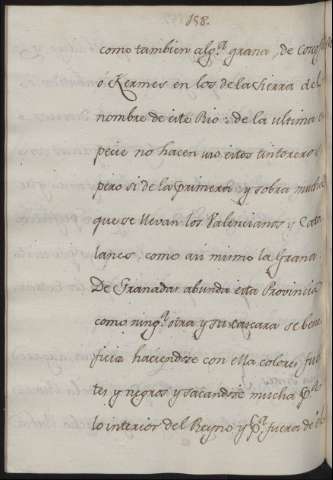 158.
como tambien alg.ª grana, de Cosco
ó Kermes en los de la Sierra del
nombre de este Rio: de la ultima es
pecie no hacen uso estos tintoreros
pero si de la primera: y sobra mucha
que se llevan los Valencianos y Cata
lanes, como asi mismo la Grana.
De Granadas abunda esta Provincia
como ning.ª otra y su cascara se bene
ficia haciendose con ella colores fuer
tes y negros y sacandose mucha p.ª
lo interior del Reyno y p.ª fuera de